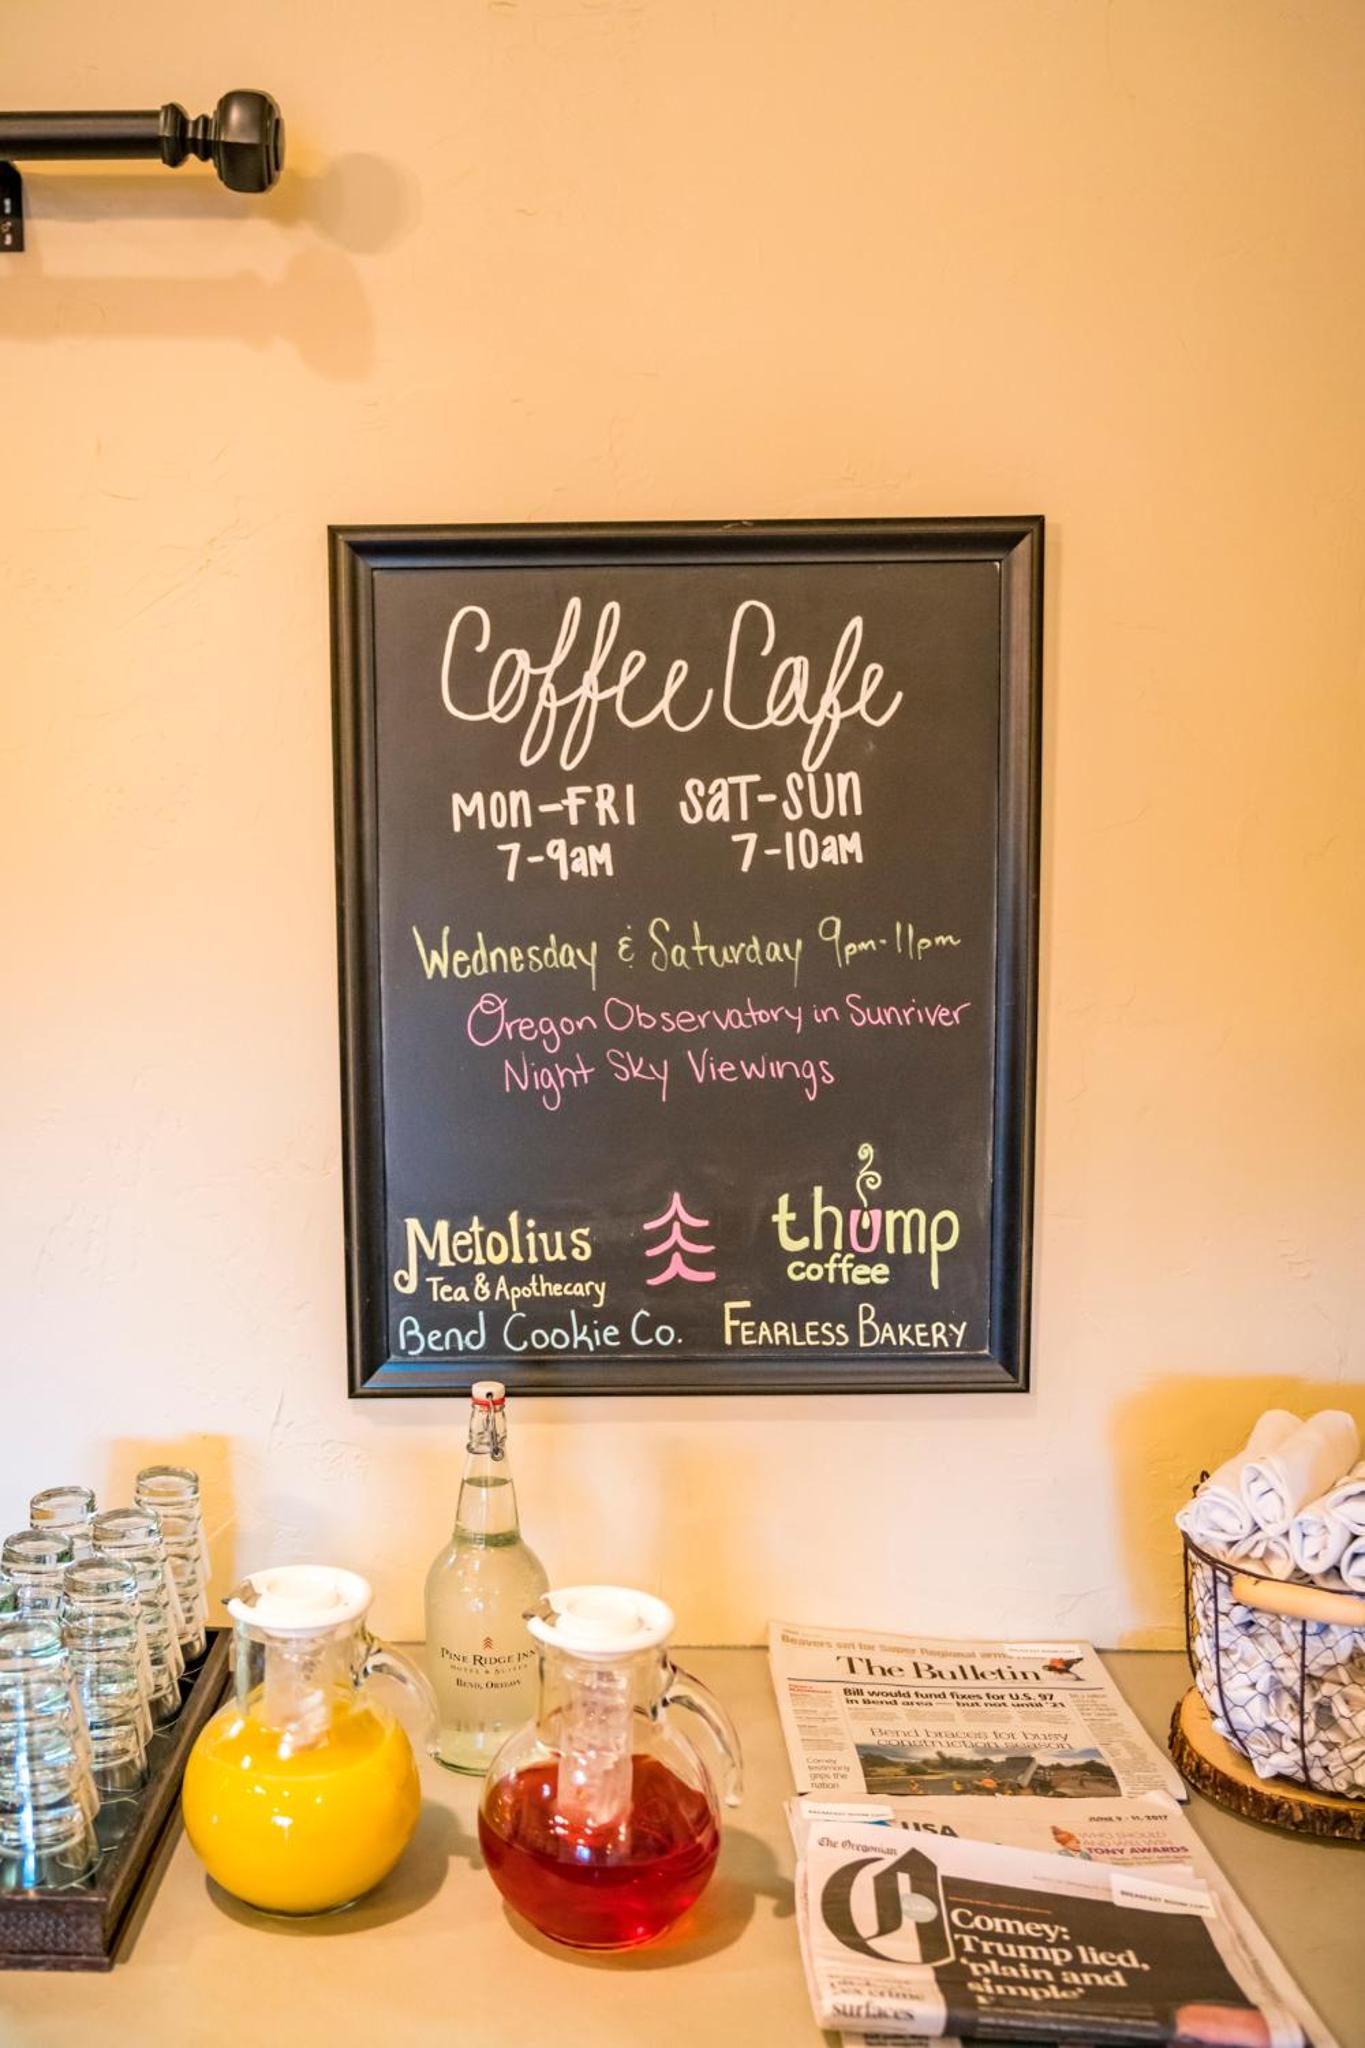 Coffee Cafe
MON-FRI SAT-SUN
7-9AM 7-10AM
Wednesday & Saturday 9pm-11pm
Oregon Observatory in Sunriver
Night Sky Viewings
Metolius
Tea & Apothecary
thump
coffee
Bend Cookie Co.
FEARLESS BAKERY
PINE RIDGE INN
HOTEL & SUITES
BEND, OREGON
Beavers set for Super Regional
The Bulletin
Bill would fund fixes for U.S. 97
in Bend area — but not until '21
Bend braces for busy
construction season
Comey
testimony
grips the
nation
BREAKFAST ROOM COPY
JUNE 9 - 11, 2017
USA
WHO SHOULD
AND WILL WIN
TONY AWARDS
The Oregonian
BREAKFAST ROOM COPY
Comey:
Trump lied,
'plain and
simple'
surfaces